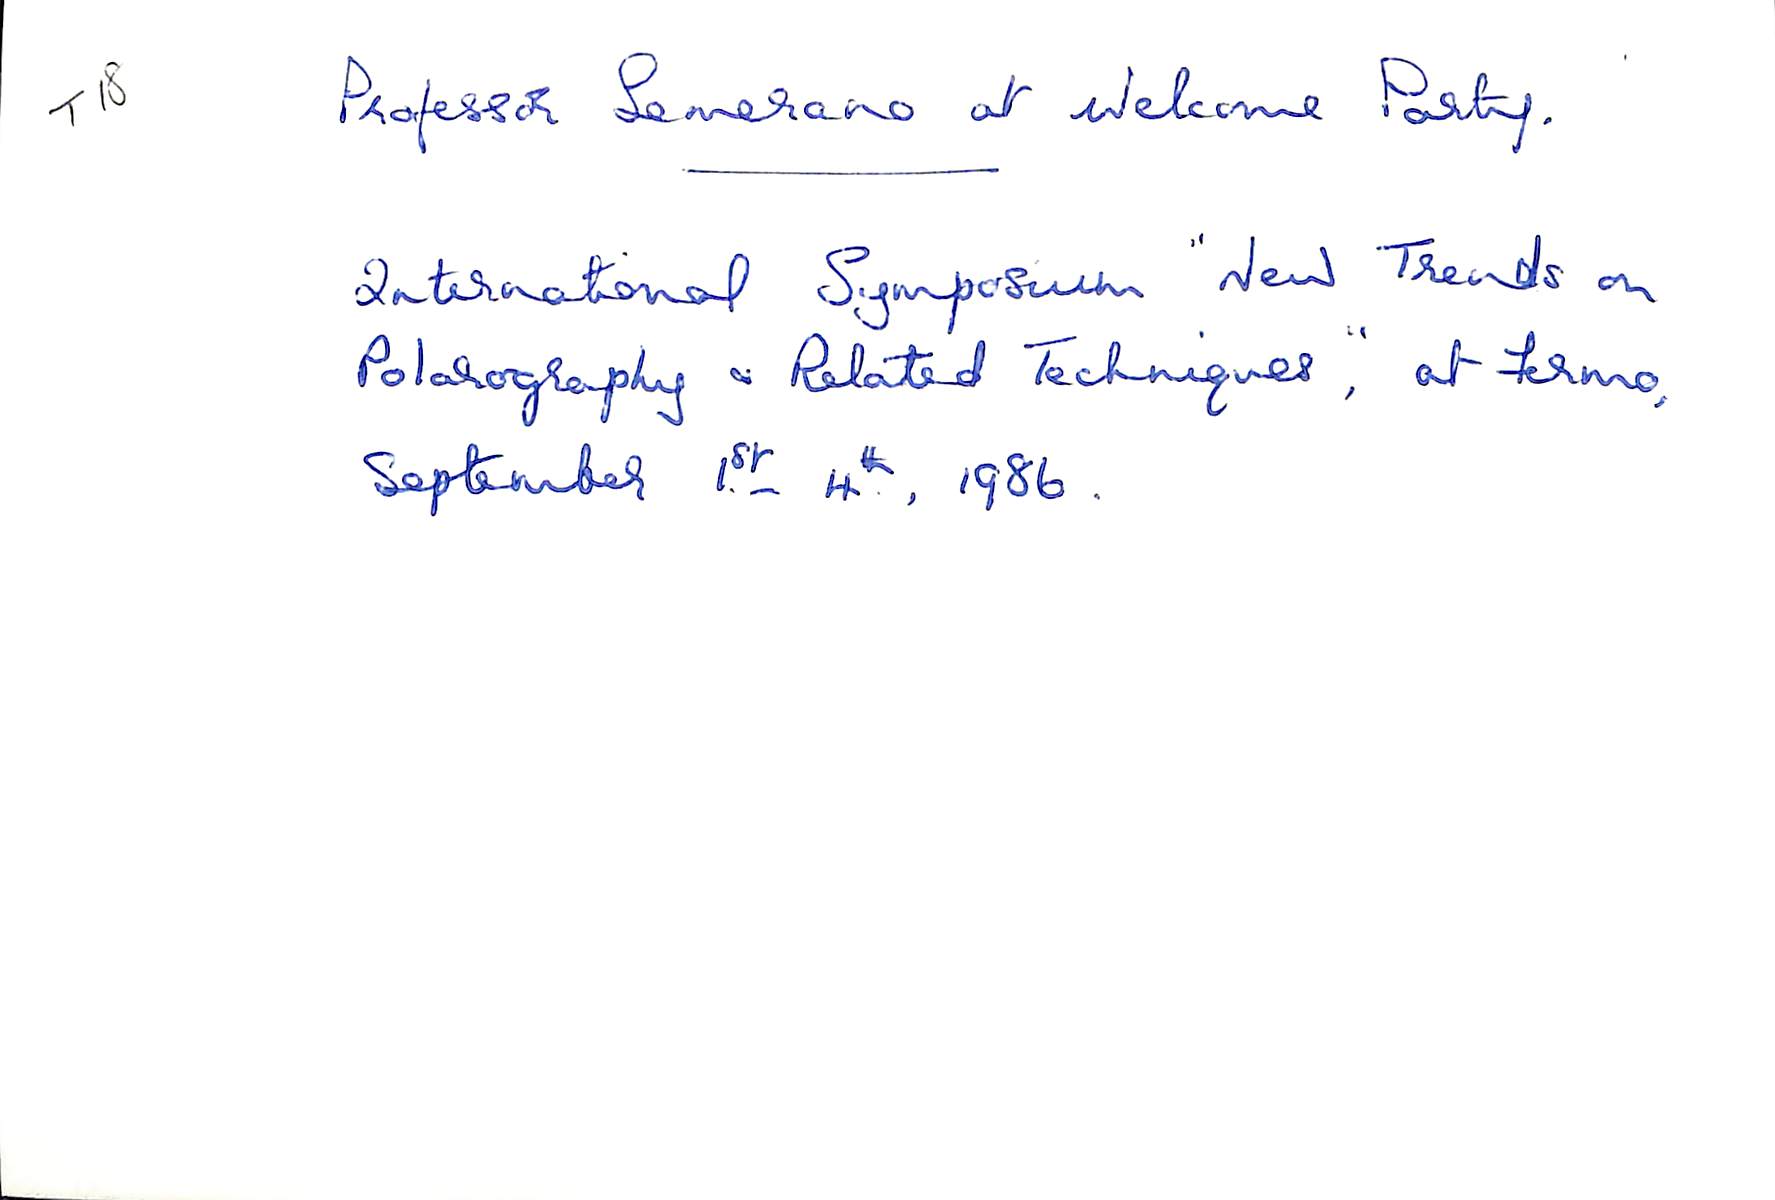 T 18
Professor Semerano at Welcome Party.
International Symposium "New Trends on
Polarography & Related Techniques", at Fermo,
September 1st - 4th, 1986.